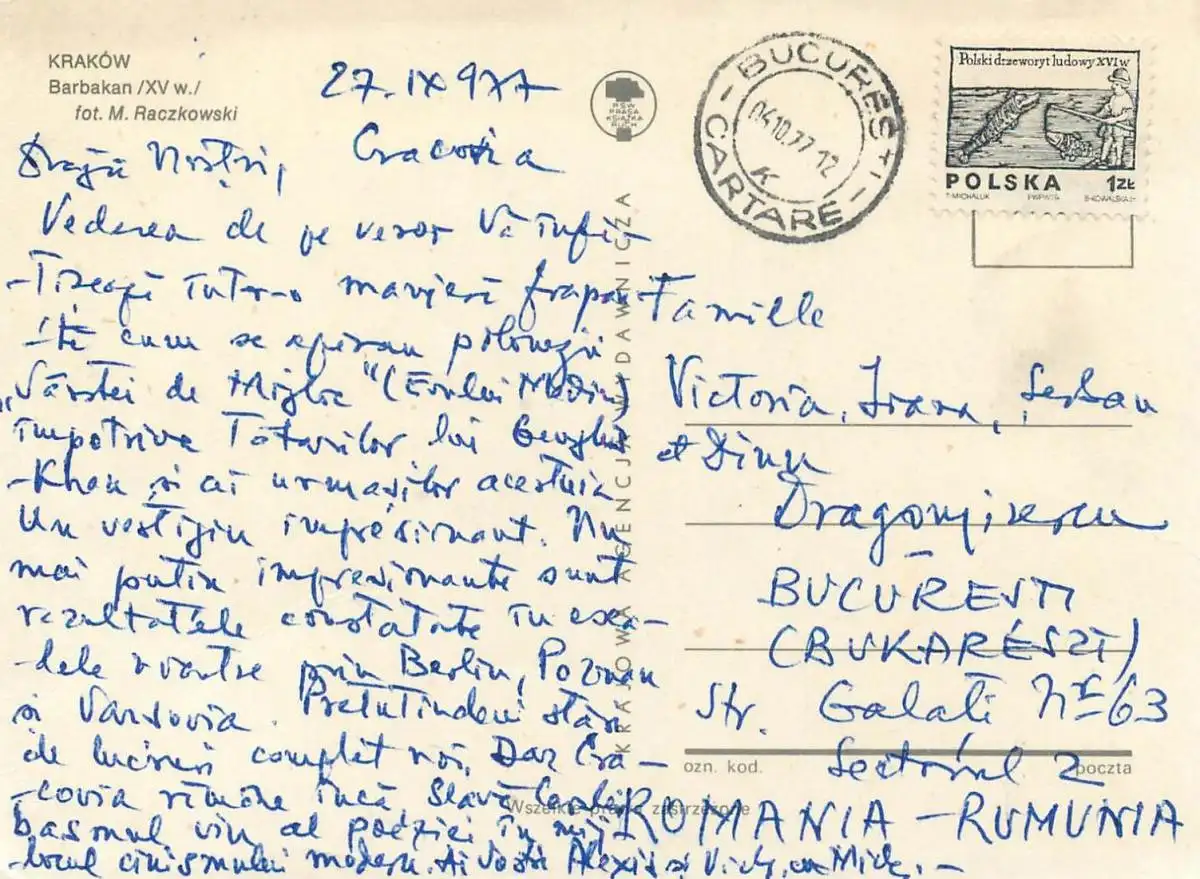 KRAKÓW
Barbakan /XV w./
fot. M. Raczkowski
27.IX 977
Cracovia
Dragii Noștri,
Vederea de pe verso Vă înfă-
-țișează într-o manieră frapan-
-tă cum se apărau polonezii
„Vârstei de Mijloc" (Evului Mediu)
împotriva Tătarilor lui Genghis
-Khan și ai urmașilor acestuia
Un vestigiu impresionant. Nu
mai puțin impresionante sunt
rezultatele constatate în esca-
-lele noastre prin Berlin, Poznan
și Varșovia. Pretutindeni stăm
de lucruri complet noi. Dar Cra-
-covia rămâne încă, slavă Cerului
basmul viu al poeziei în mij-
-locul cinismului modern. Ai Voștri Alexis și Vichy, cu Mick. -
PSW PRASA KSIĄŻKA RUCH
KRAJOWA AGENCJA WYDAWNICZA
BUCUREȘTI
CARTARE
04.10.77.12
K
Polski drzeworyt ludowy XVI w
POLSKA 1ZŁ
T-MICHALUK PWPW-76 B-KOWALSKA
Famille
Victoria, Ioana, Șerban
et Dinu
Dragomirescu
BUCUREȘTI
(BUKARÉSZT)
Str. Galați Nr 63
Sectorul 2
ROMANIA - RUMUNIA
ozn. kod. poczta
Wszelkie prawa zastrzeżone